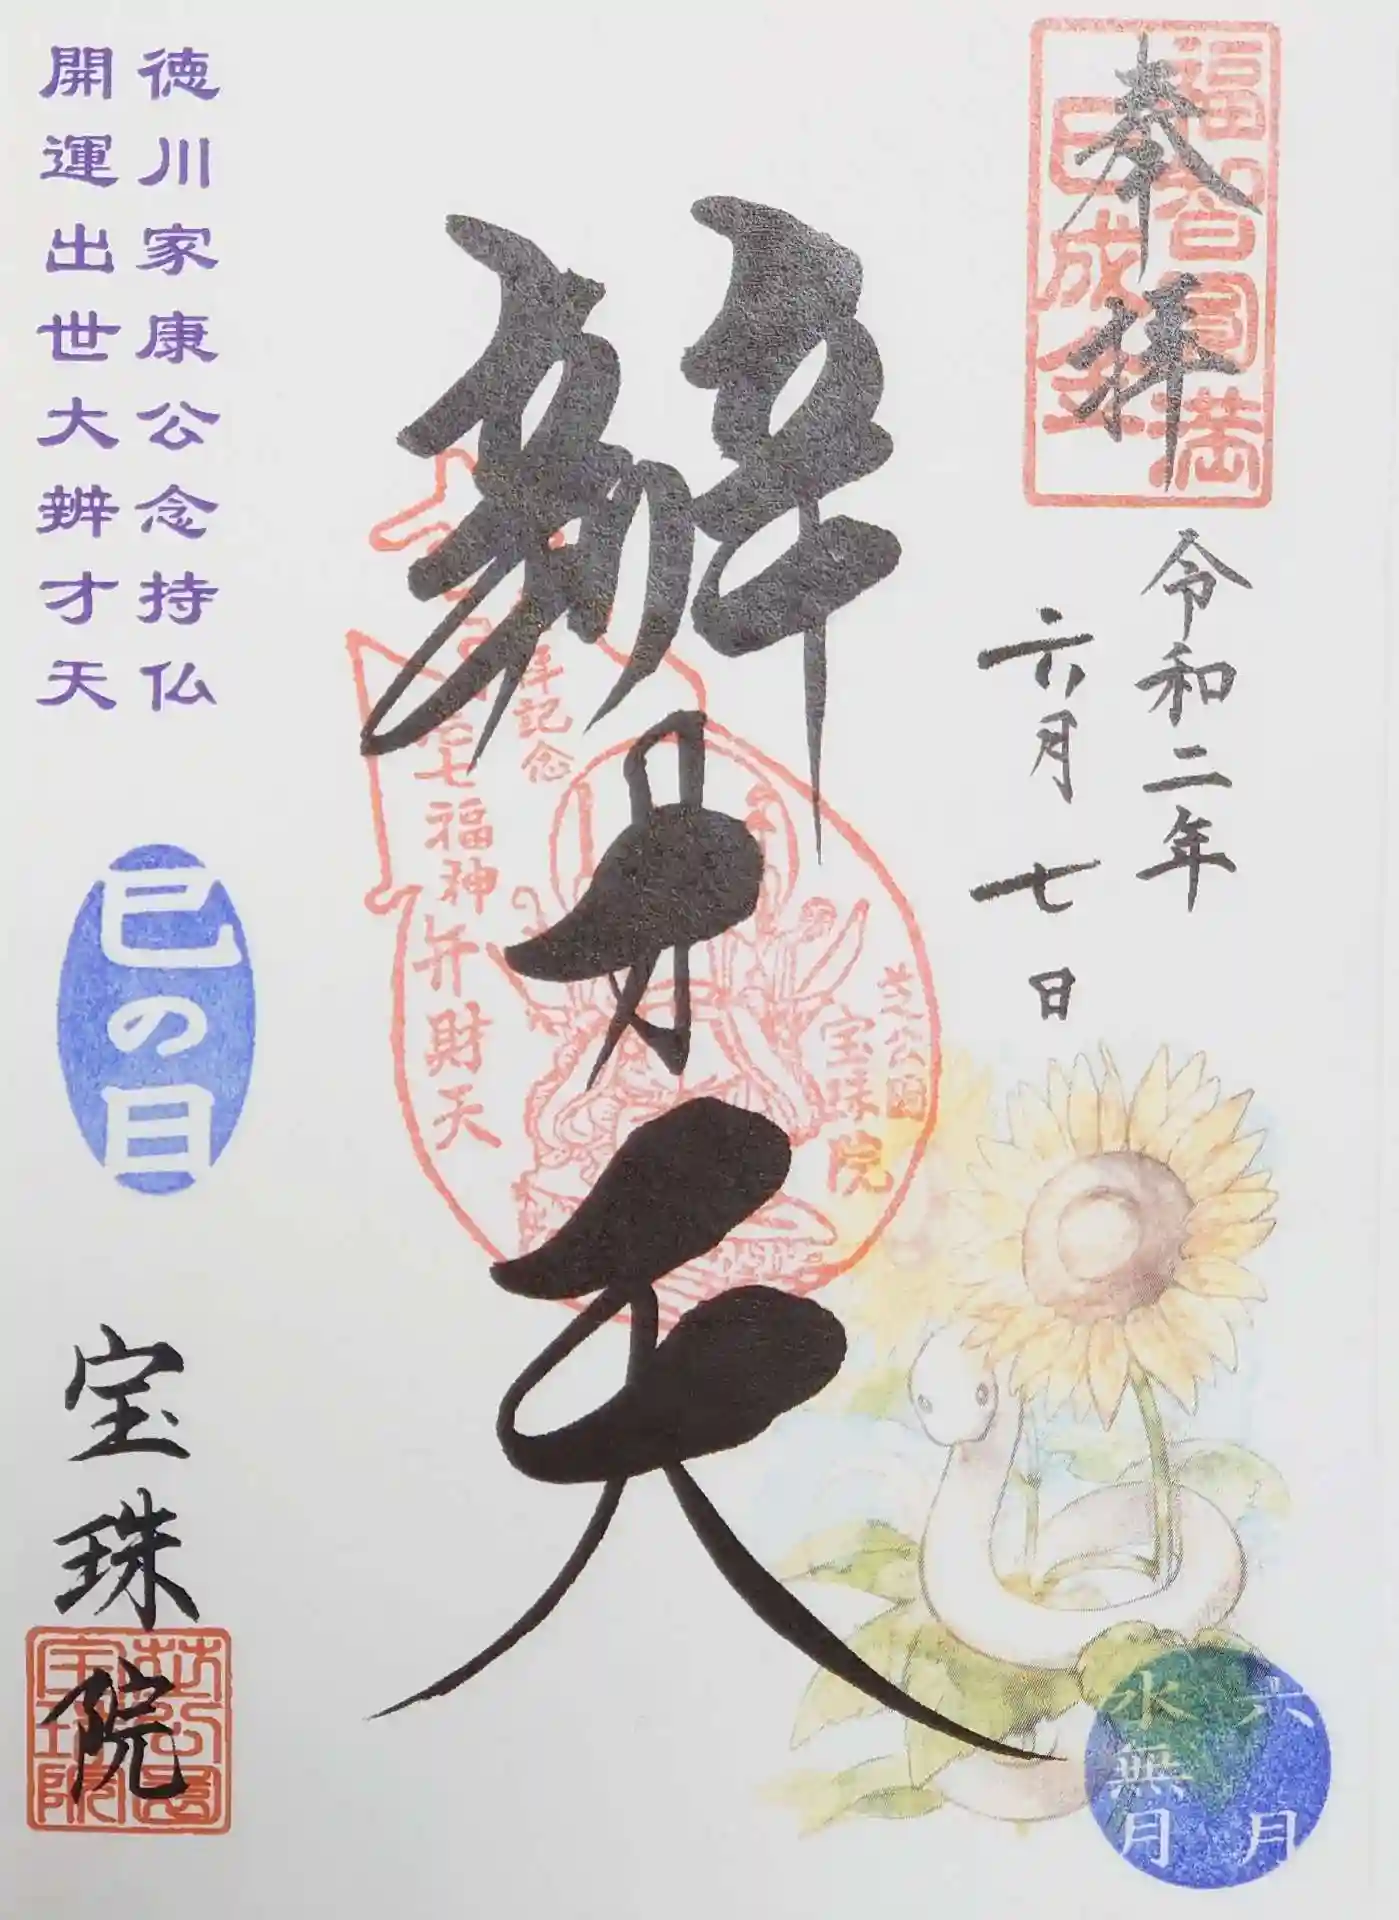 奉拝
福智圓満
巳成金
令和二年
六月七日
辨才天
拝記念
七福神
弁財天
芝公園
宝珠院
徳川家康公念持仏
開運出世大辨才天
巳の日
宝珠院
芝公園
宝珠院
六月
水無月